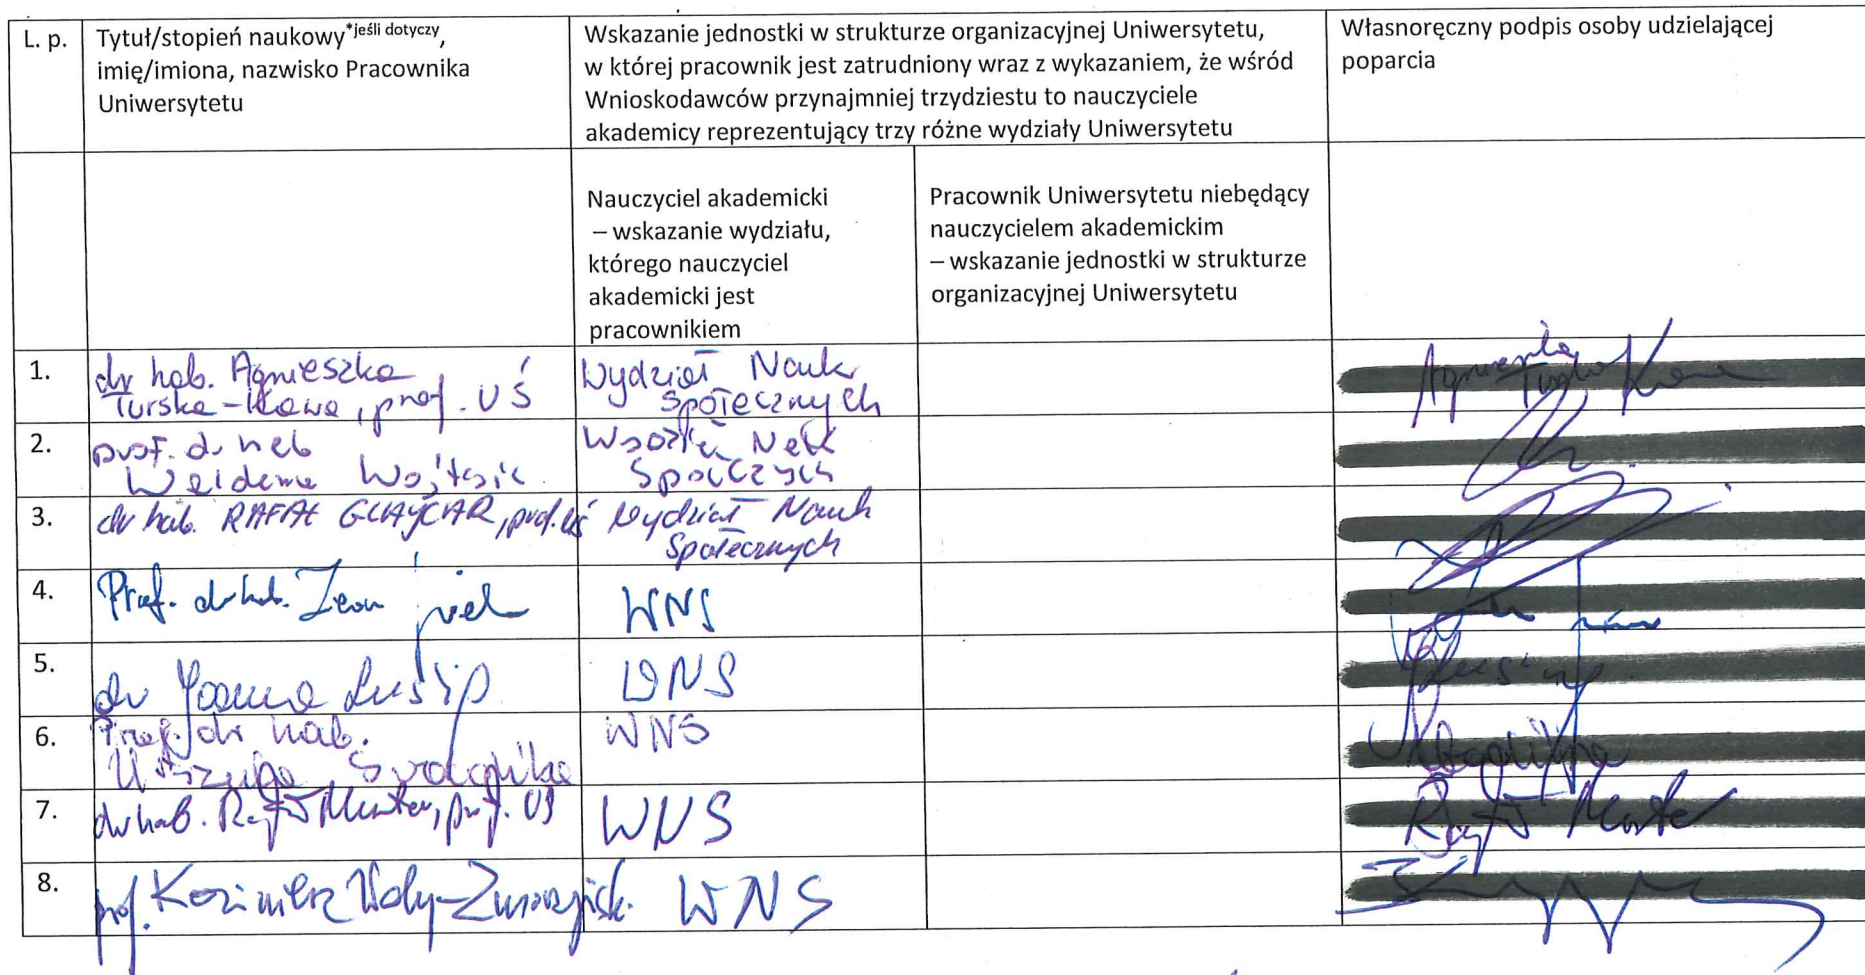 L. p.
Tytuł/stopień naukowy*jeśli dotyczy,
imię/imiona, nazwisko Pracownika
Uniwersytetu
Wskazanie jednostki w strukturze organizacyjnej Uniwersytetu,
w której pracownik jest zatrudniony wraz z wykazaniem, że wśród
Wnioskodawców przynajmniej trzydziestu to nauczyciele
akademicy reprezentujący trzy różne wydziały Uniwersytetu
Własnoręczny podpis osoby udzielającej
poparcia
Nauczyciel akademicki
– wskazanie wydziału,
którego nauczyciel
akademicki jest
pracownikiem
Pracownik Uniwersytetu niebędący
nauczycielem akademickim
– wskazanie jednostki w strukturze
organizacyjnej Uniwersytetu
1.
dr hab. Agnieszka
Turska-Kawa, prof. UŚ
Wydział Nauk
Społecznych
2.
prof. dr hab
3.
dr hab. RAFAŁ prof. UŚ
Wydział Nauk
Społecznych
4.
Prof. dr hab.
WNS
5.
dr Joanna
WNS
6.
Prof. dr hab.
WNS
7.
dr hab. Rafał Muster, prof. UŚ
WNS
Rafał Muster
8.
prof. Kazimierz
WNS